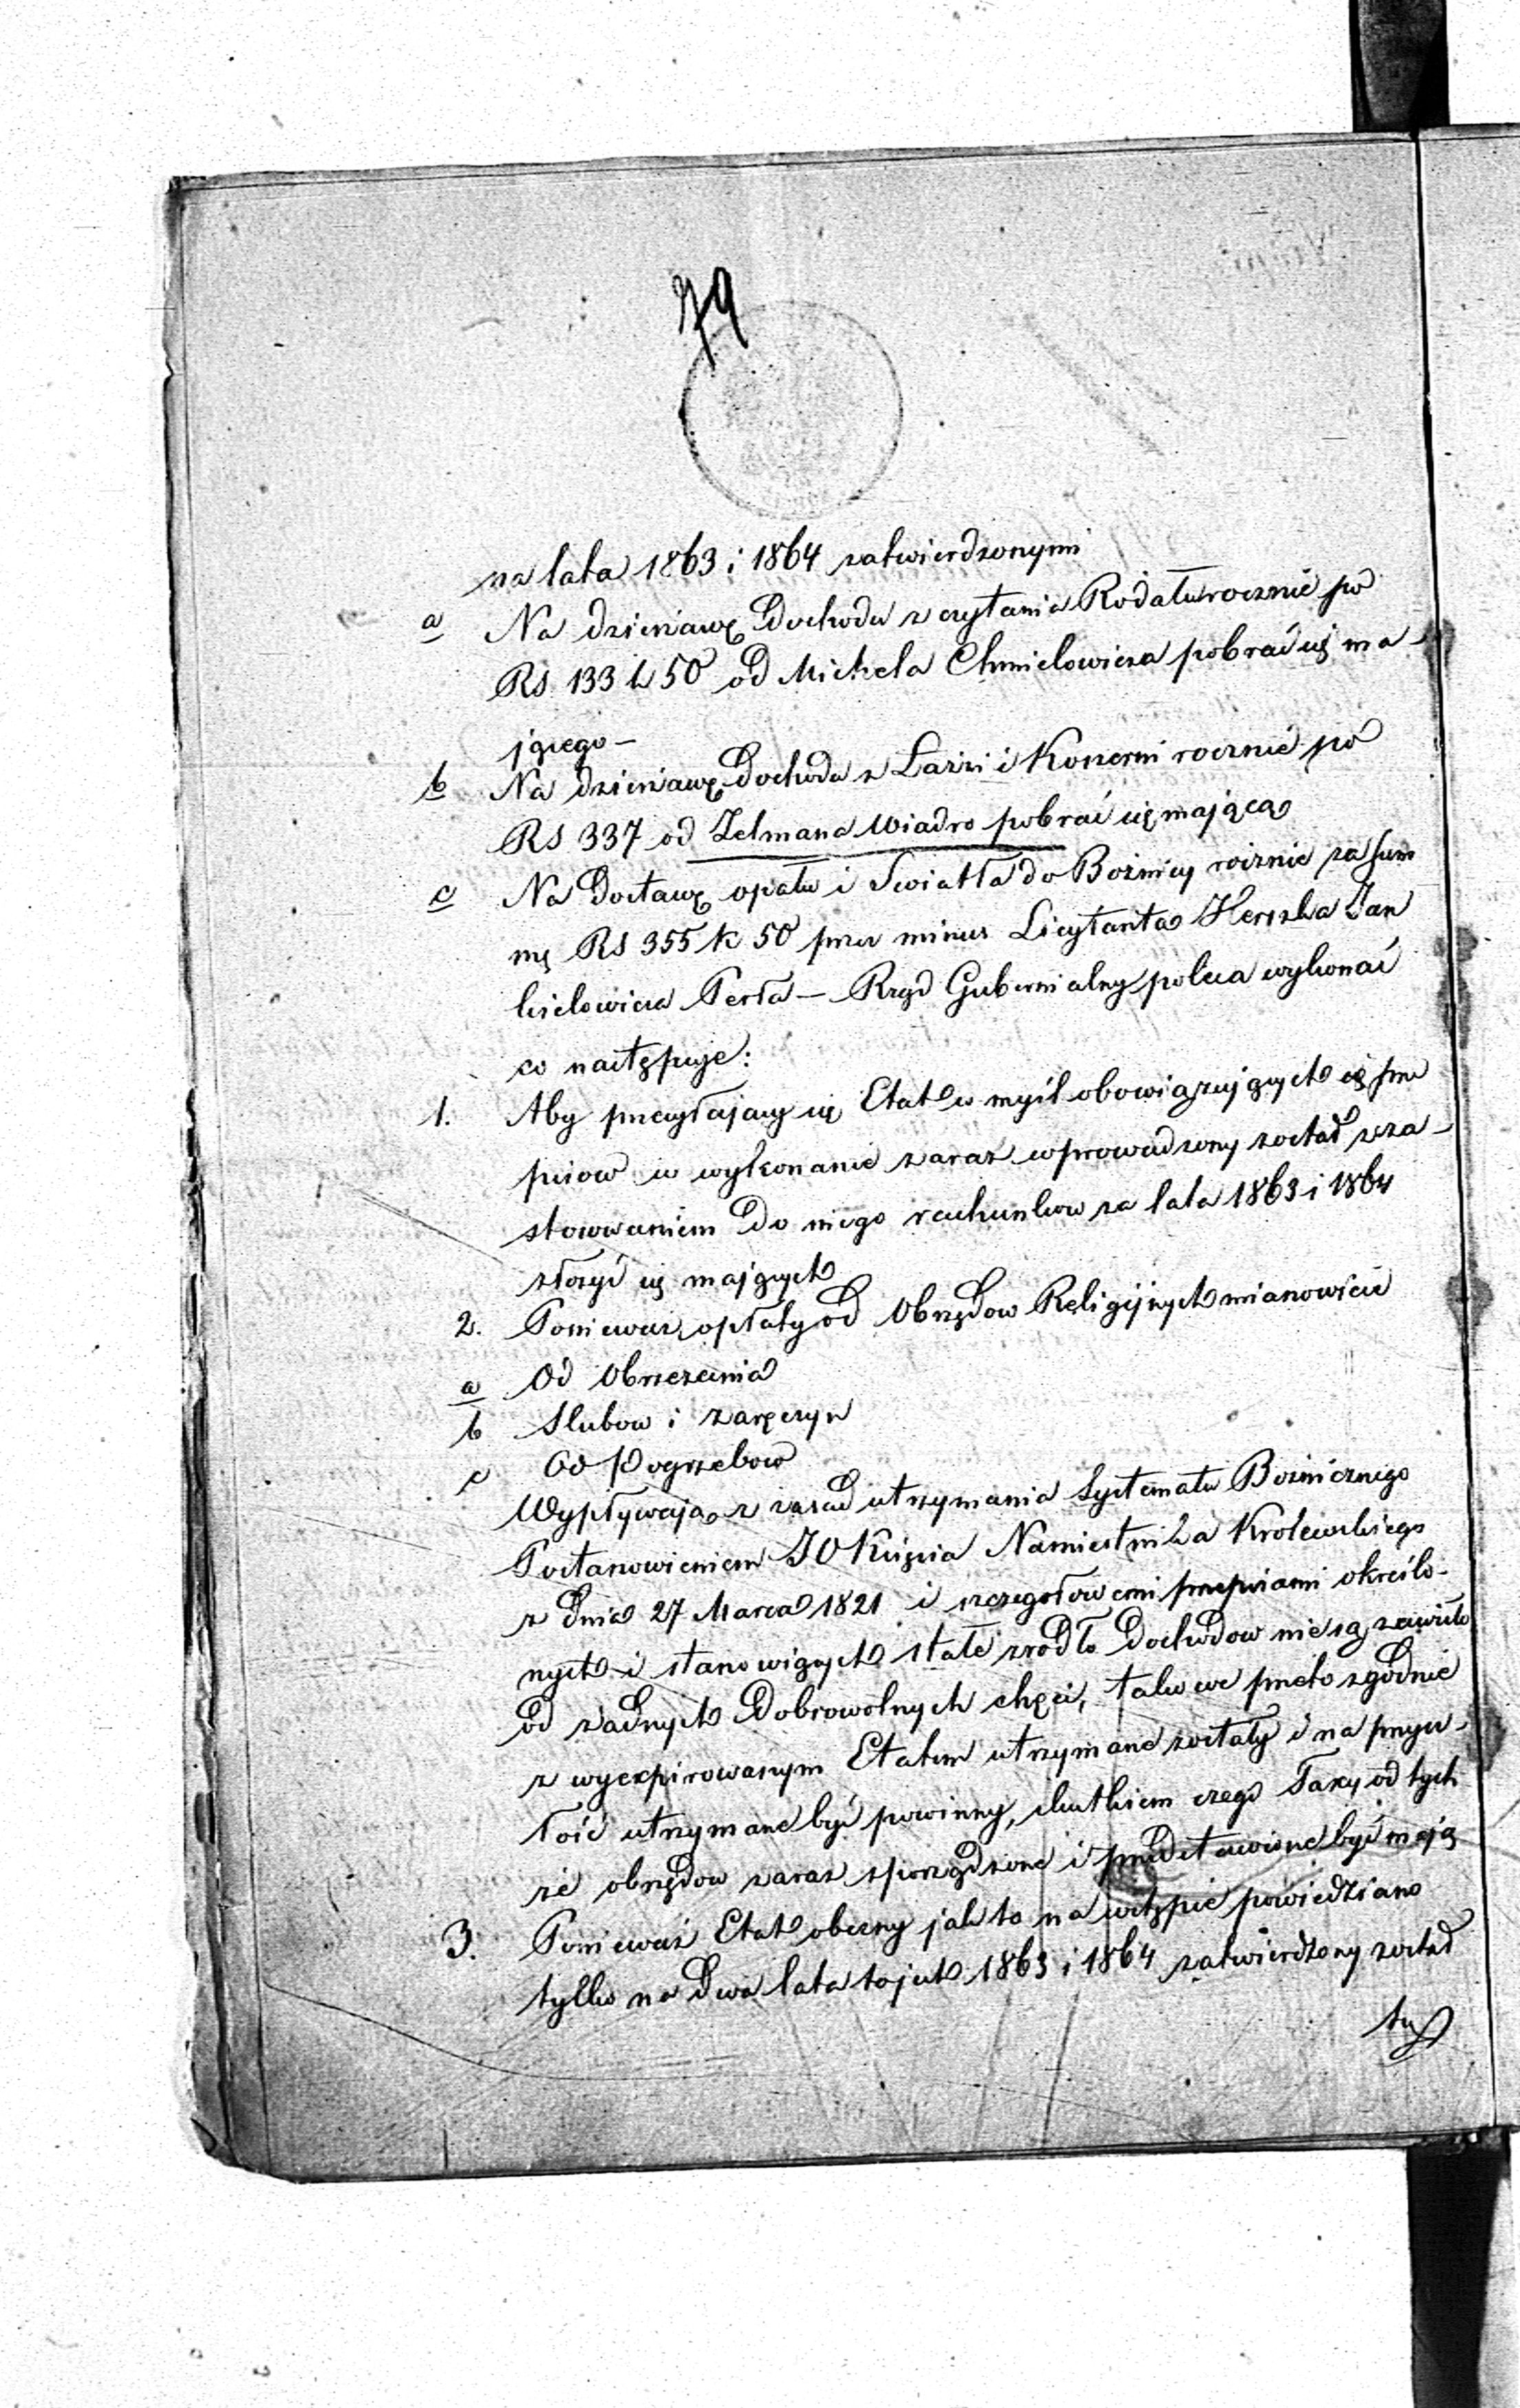 79
na lata 1863 i 1864 zatwierdzonymi
a Na dzierżawę Dochodu z czytania Rodału rocznie po
RS 133 k 50 od Michela Chmielowicza pobrać się ma-
jącego—
b Na dzierżawę Dochodu z Łaźni i Koszerni rocznie po
RS 337 od Zelmana Wiadro pobrać się mającą
c Na Dostawę opału i Swiatła do Bożnicy roiznie za sum
mę RS 355 k 50 przez minus Licytanta Herszka Jan
kielowicza Perła — Rząd Gubernialny poleca wykonać
co następuje:
1. Aby przeyłający się Etat w myśl obowiązujących się prze
pisow w wykonanie zaraz wprowadzony został z za-
stosowaniem do niego rachunkow za lata 1863 i 1864
złożyć się mających
2. Ponieważ opłaty od Obrzędow Religijnych mianowicie
a Od Obrzezania
b Slubow i zaręczyn
c Od Pogrzebow
Wypływają z zasad utrzymania Systematu Bożnicznego
Postanowieniem JO Księcia Namiestnika Krolewskiego
z Dnia 27 Marca 1821 i szczegołowemi przepisami określo-
nych i stanowiących stałe zrodło Dochodow nie są zawisłe
od żadnych Dobrowolnych chęci, takowe przeto zgodnie
z wyexpirowanym Etatem utrzymane zostały i na przysz-
łość utrzymane być powinny, skutkiem czego Taxy od tych
że obrzędow zaraz sporządzone i przedstawione być mają
3. Ponieważ Etat obecny jak to na wstępie powiedziano
tylko na Dwa lata to jest 1863 i 1864 zatwierdzony został